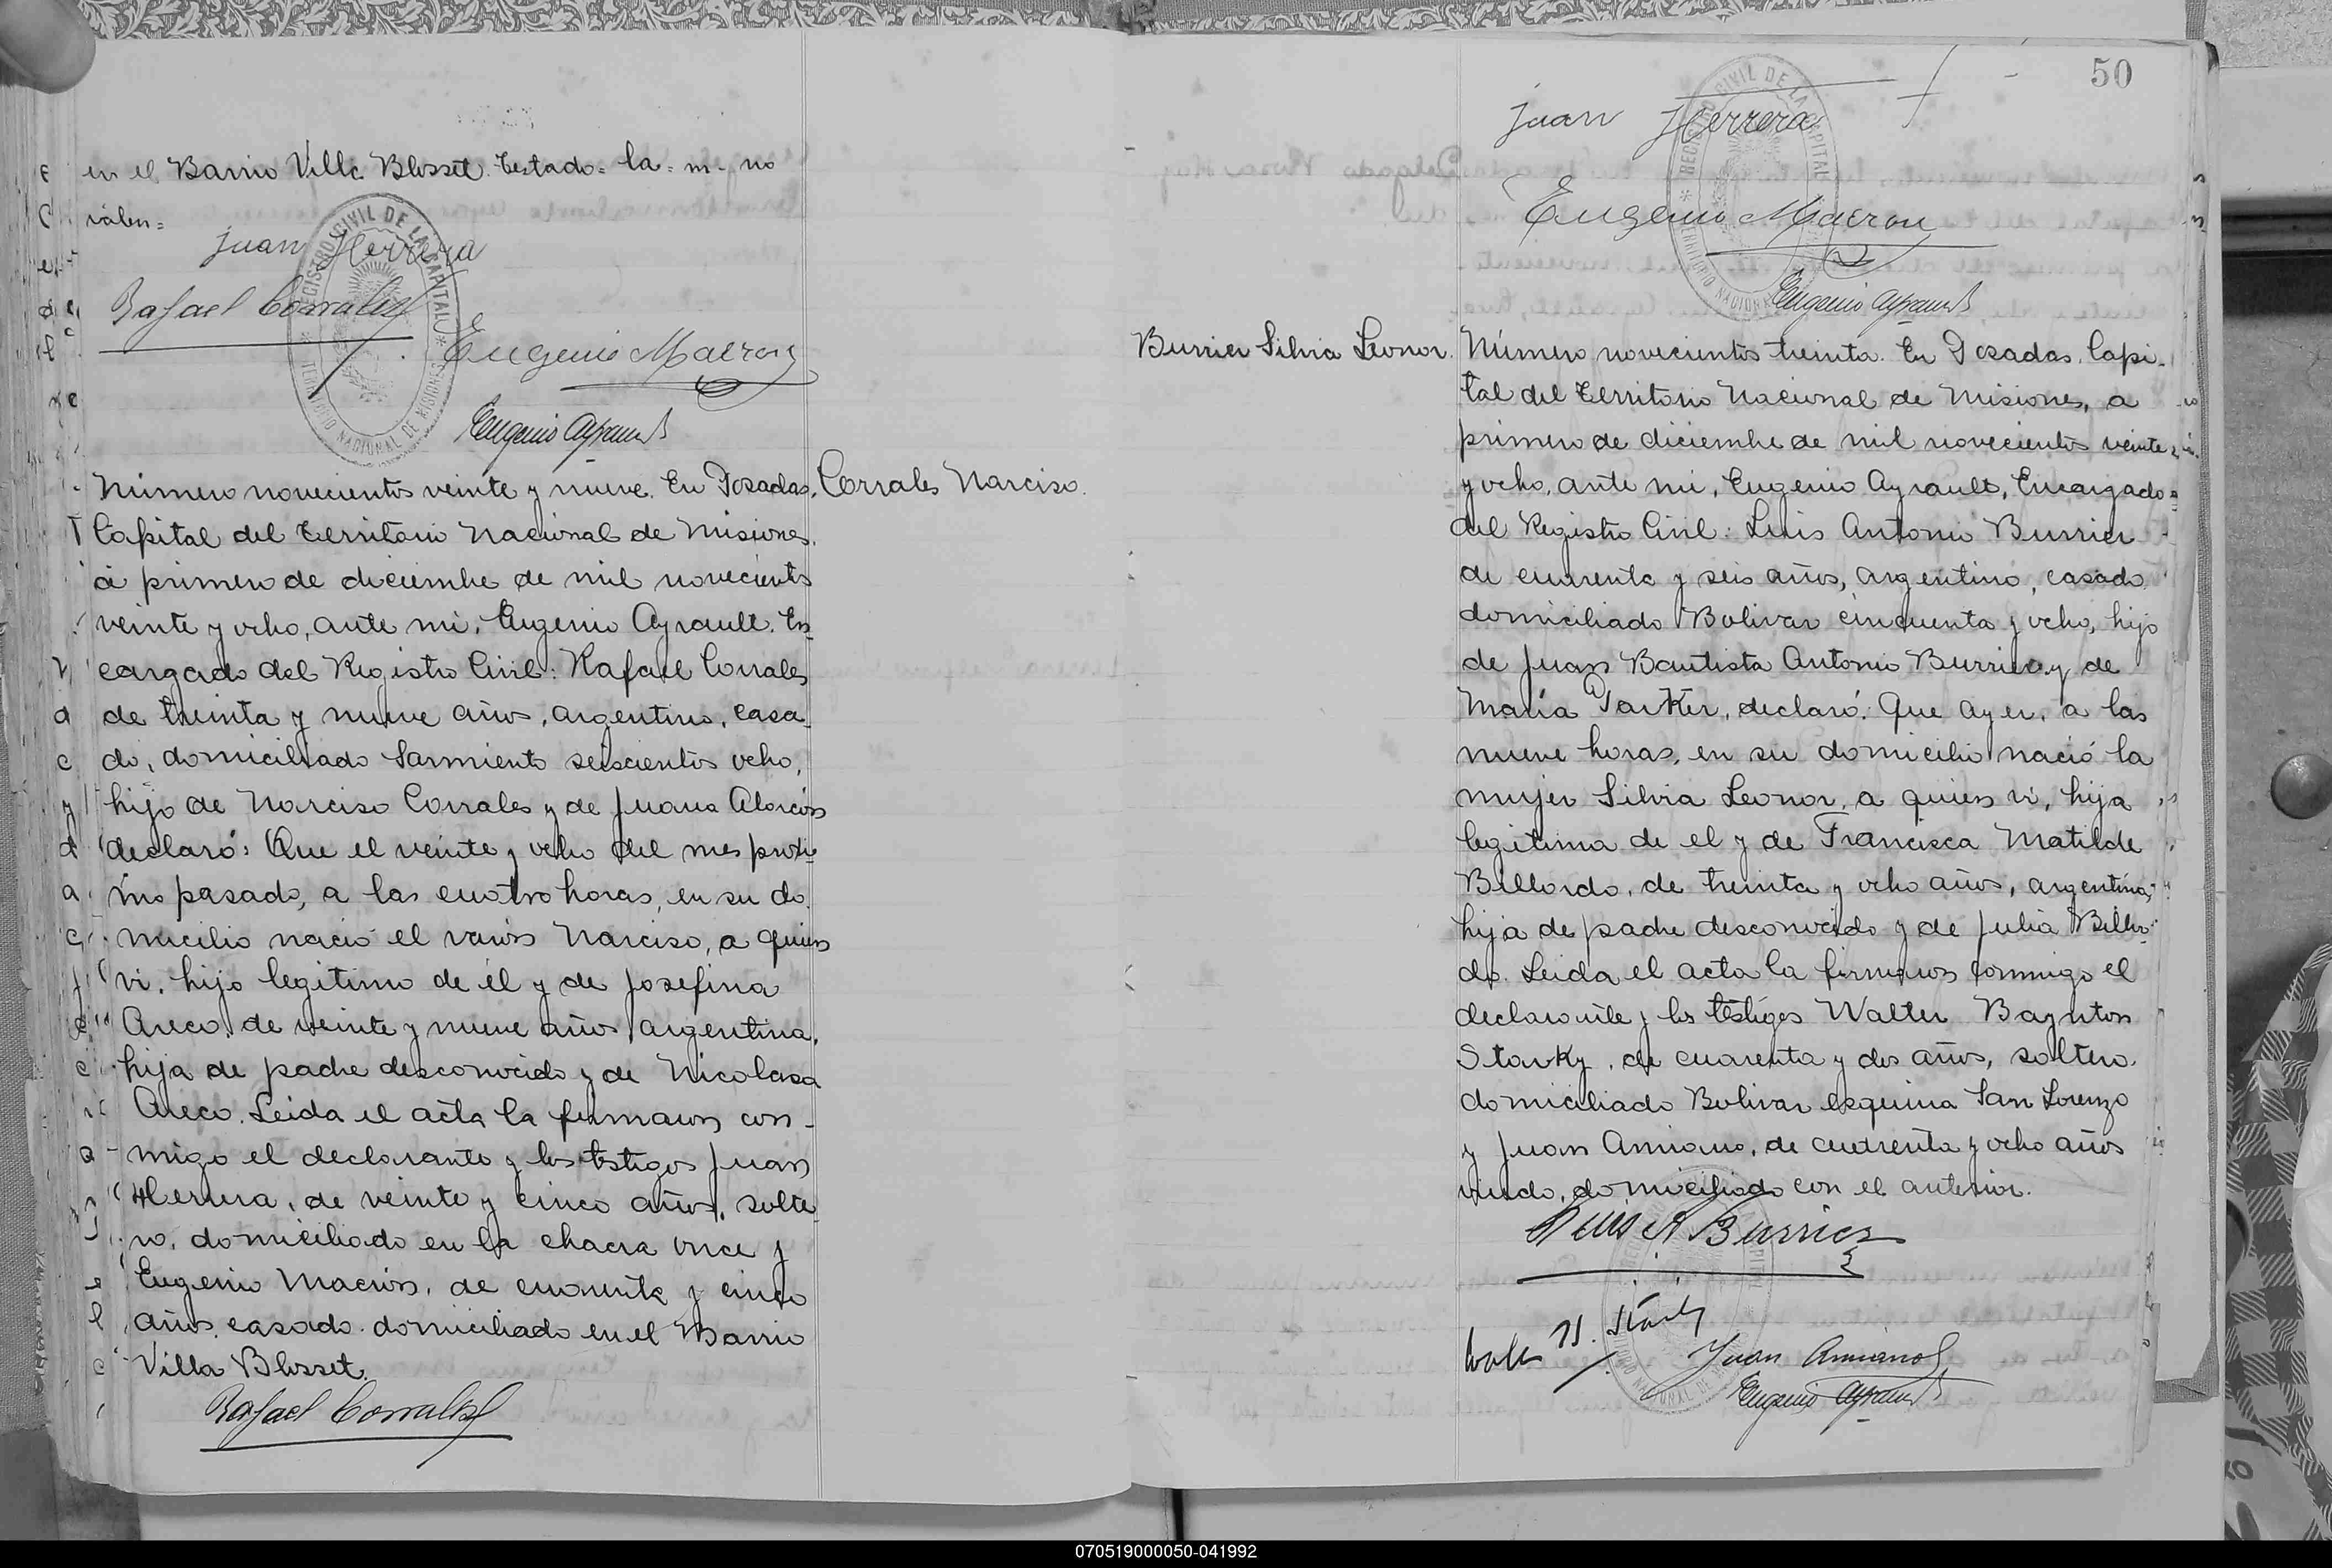 en el Barrio Villa Blosset. Testado = la = m = no
valen =
Juan Herrera
Rafael Corrales
Eugenio Macron
Eugenio Ayrault
Número novecientos veinte y nueve. En Posadas,
Corrales Narciso.
Capital del Territorio Nacional de Misiones,
a primero de diciembre de mil novecientos
veinte y ocho, ante mi, Eugenio Ayrault, En-
cargado del Registro Civil: Rafael Corrales
de treinta y nueve años, argentino, casa-
do, domiciliado Sarmiento seiscientos ocho,
hijo de Narciso Corrales y de Juana Alarcón
declaró: Que el veinte y ocho del mes proxi-
mo pasado, a las cuatro horas, en su do-
micilio nació el varón Narciso, a quien
vi, hijo legitimo de él y de Josefina
Areco, de veinte y nueve años, argentina,
hija de padre desconocido y de Nicolasa
Areco. Leida el acta la firmaron con-
migo el declarante y los testigos Juan
Herrera, de veinte y cinco años, solte-
ro, domiciliado en la chacra once y
Eugenio Macrón, de cuarenta y cinco
años, casado, domiciliado en el Barrio
Villa Blosset.
Rafael Corrales
50
Juan Herrera
Eugenio Macron
Eugenio Ayrault
REGISTRO CIVIL DE LA CAPITAL
TERRITORIO NACIONAL DE MISIONES
Burrier Silvia Leonor.
Número novecientos treinta. En Posadas, Capi-
tal del Territorio Nacional de Misiones, a
primero de diciembre de mil novecientos veinte
y ocho, ante mi, Eugenio Ayrault, Encargado
del Registro Civil: Luis Antonio Burrier
de cuarenta y seis años, argentino, casado
domiciliado Bolivar cincuenta y ocho, hijo
de Juan Bautista Antonio Burrier y de
María Parker, declaró: Que ayer, a las
nueve horas, en su domicilio nació la
mujer Silvia Leonor, a quien vi, hija
legitima de el y de Francisca Matilde
Billordo, de treinta y ocho años, argentina,
hija de padre desconocido y de Julia Billor-
do. Leida el acta la firmaron conmigo el
declarante y los testigos Walter Baynton
Starky, de cuarenta y dos años, soltero,
domiciliado Bolivar esquina San Lorenzo
y Juan Amiano, de cuarenta y ocho años
viudo, domiciliado con el anterior.
Luis A Burrier
Walter B. Starky
Juan Amiano
Eugenio Ayrault
070519000050-041992